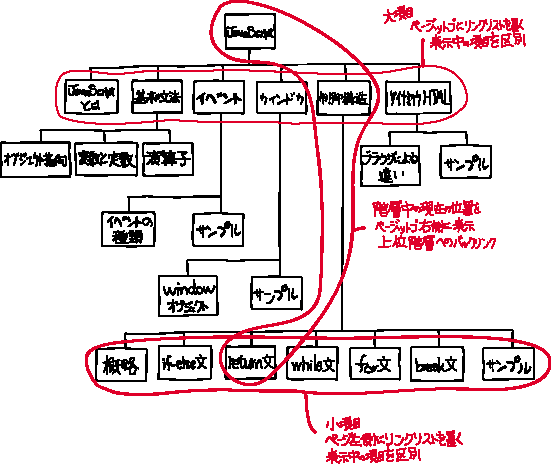 JavaScript
大項目
ページトップにリンクリストを置く
表示中の項目を区別
JavaScript
とは
基本文法
イベント
ウィンドウ
制御構造
ダイナミックHTML
オブジェクト指向
変数と定数
演算子
ブラウザによる
違い
サンプル
イベントの
種類
サンプル
階層中の現在の位置を
ページトップ右側に表示
上位階層へのバックリンク
window
オブジェクト
サンプル
概略
if-else文
return文
while文
for文
break文
サンプル
小項目
ページ左側にリンクリストを置く
表示中の項目を区別